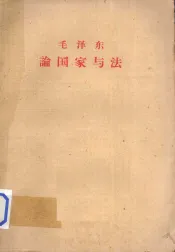 毛泽东
論国家与法